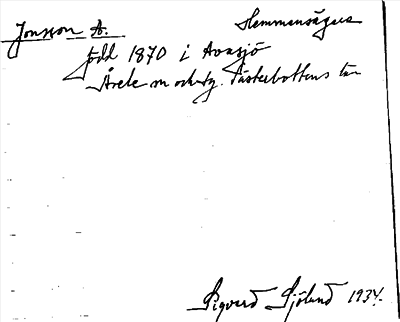 Jonsson A. Hemmansägare
född 1870 i Avasjö
Åsele sn och tg. Västerbottens län
Sigvard Sjölund 1934.